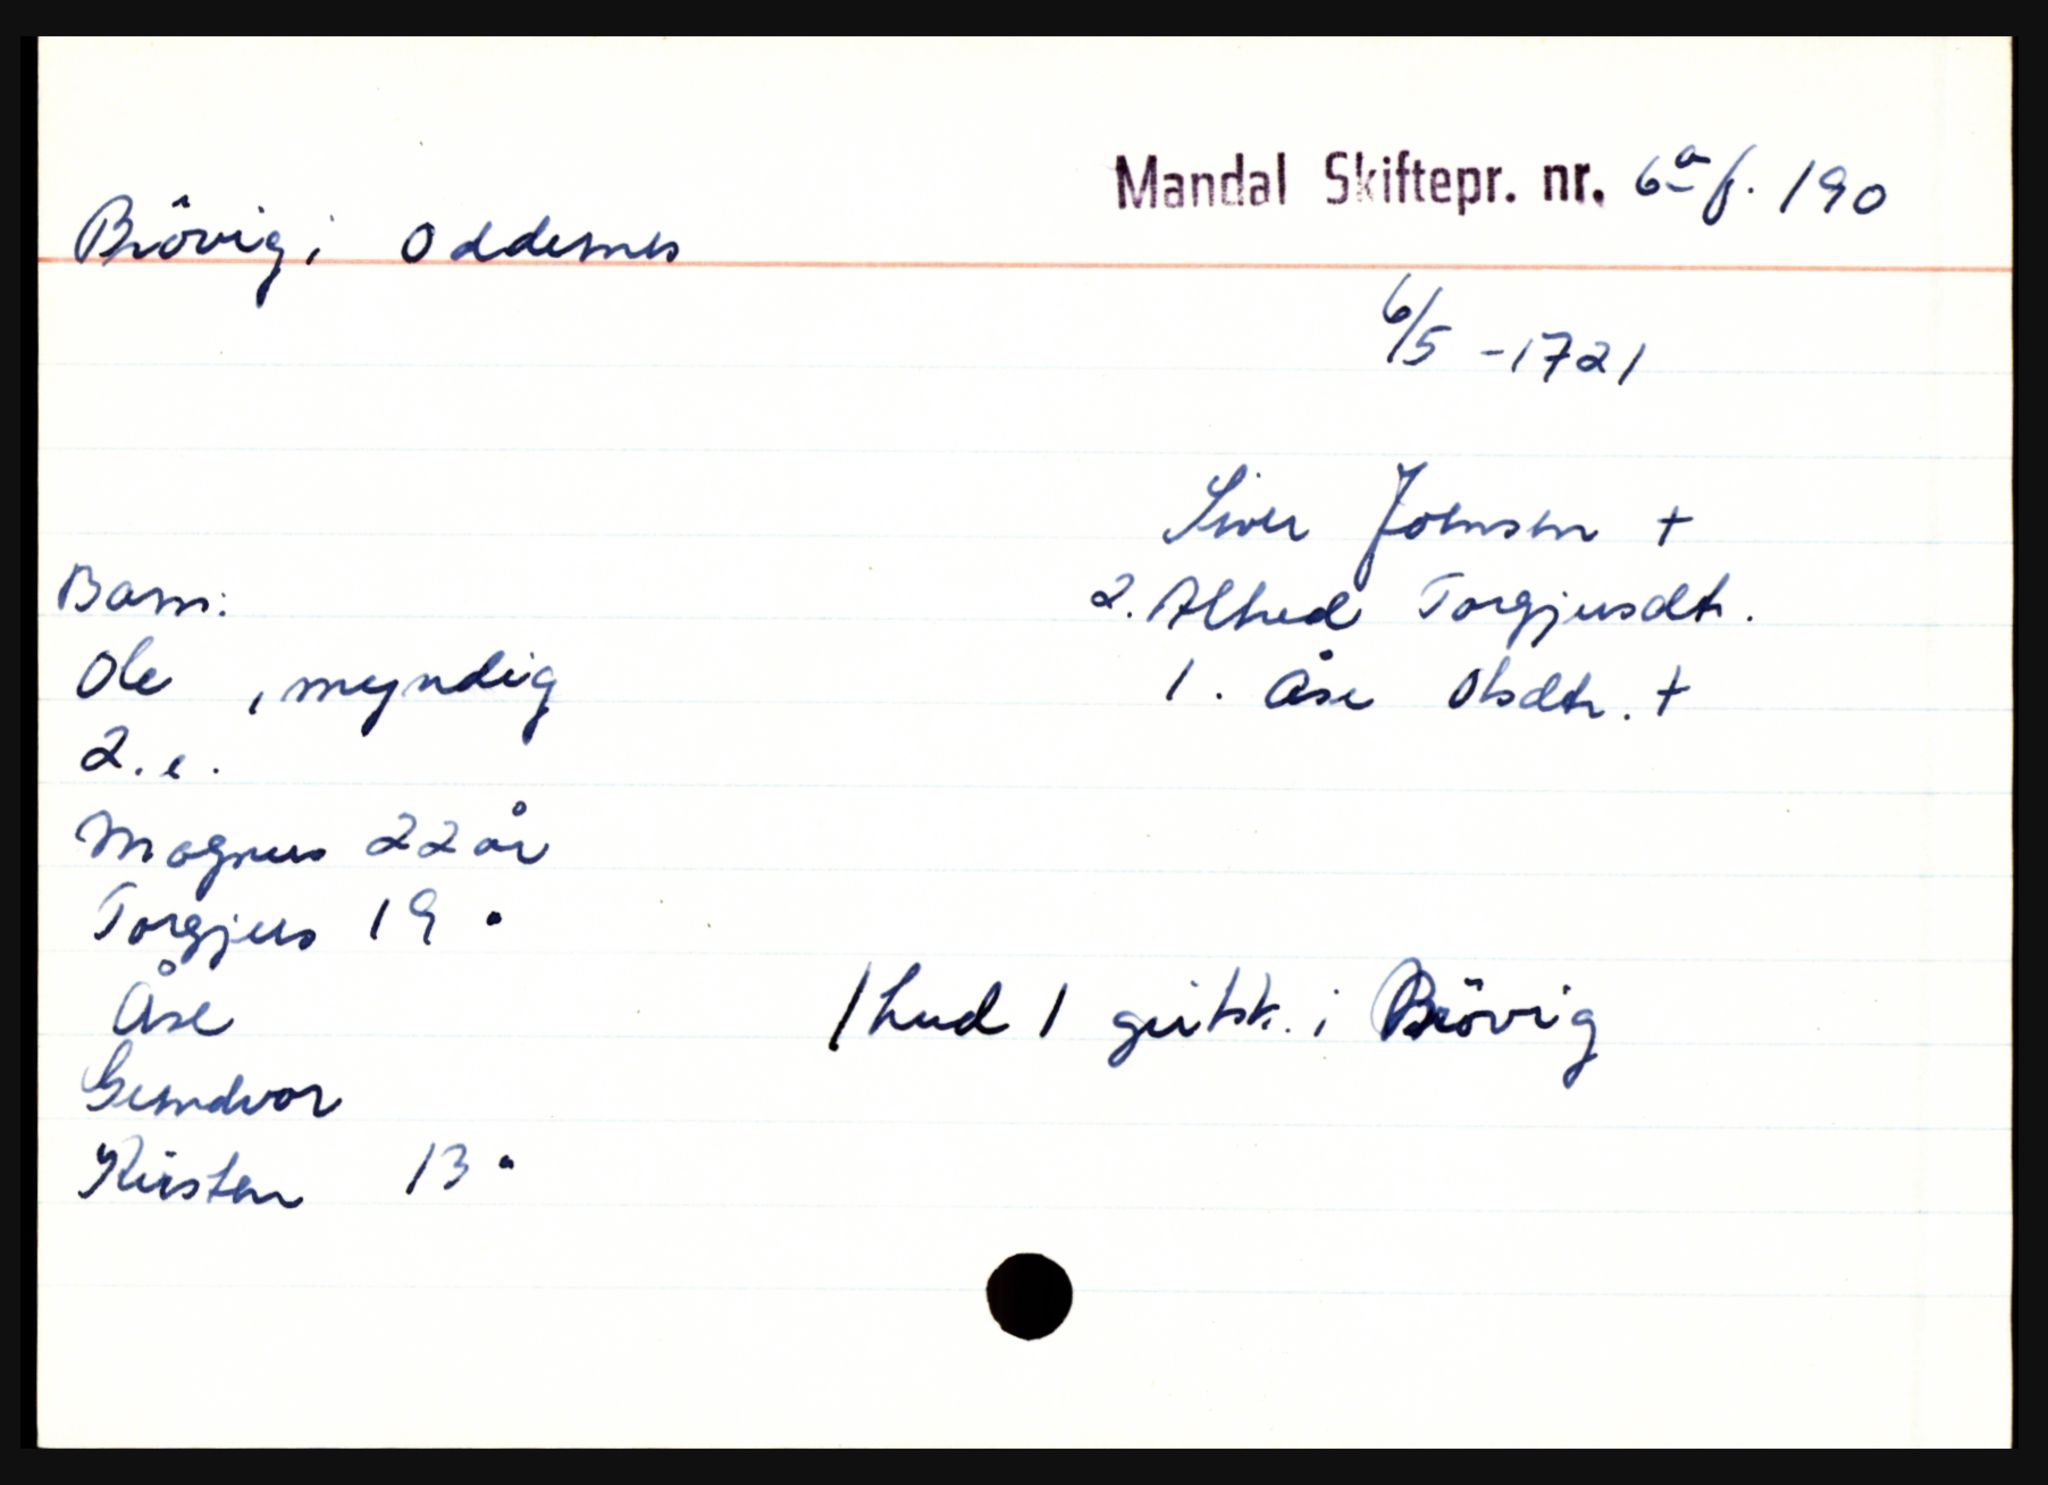 Mandal Skiftepr. nr. 6a f. 190
Brövig i Oddernes
6/5 - 1721
Siver Johnsen +
Barn:
2. Alhed Torgjusdtr.
Ole , myndig
1. Åse Olsdtr. +
2. e.
Magnus 22 år
Torgjus 19 "
Åse
1 hud 1 geitsk. i Brövig
Gundvor
Kirsten 13 "